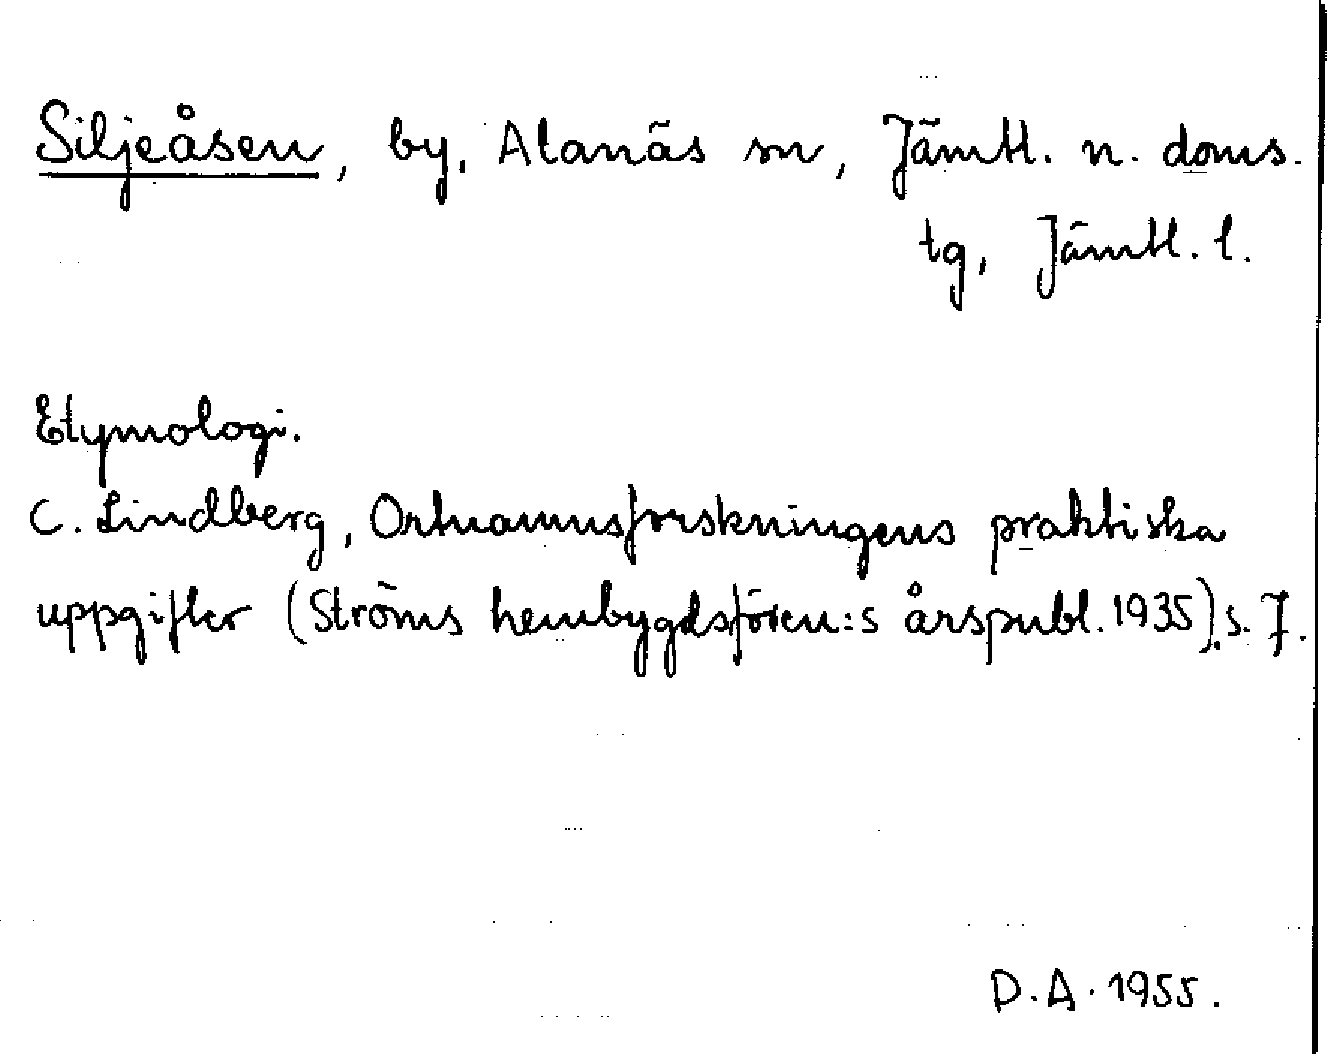 Siljeåsen, by, Alanäs sn, Jämtl. n. doms.
tg, Jämtl. l.
Etymologi.
C. Lindberg, Ortnamnsforskningens praktiska
uppgifter (Ströms hembygdsfören:s årspubl. 1935), s. 7.
D.A. 1955.